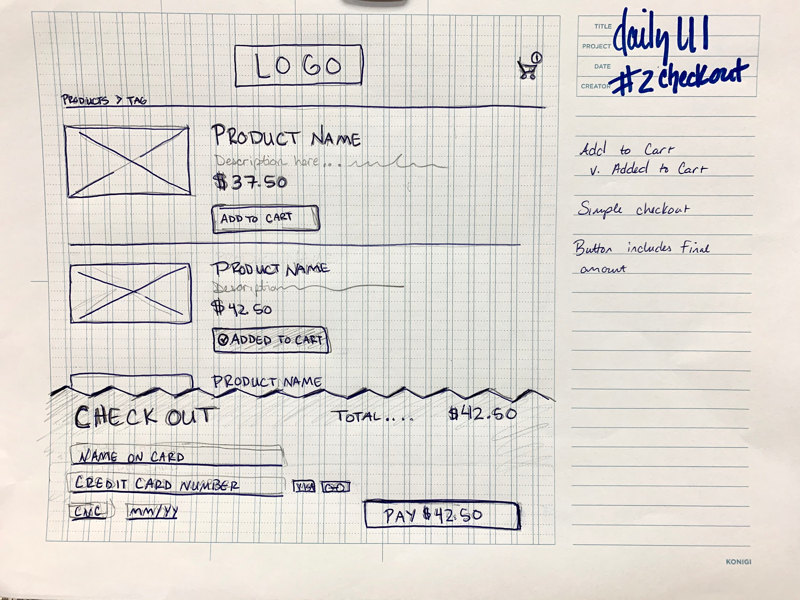 LOGO
1
PRODUCTS > TAG
PRODUCT NAME
Description here...
$37.50
ADD TO CART
PRODUCT NAME
Description
$42.50
ADDED TO CART
PRODUCT NAME
CHECK OUT
TOTAL....
$42.50
NAME ON CARD
CREDIT CARD NUMBER
VISA
CNC
MM/YY
PAY $42.50
TITLE
PROJECT
DATE
CREATOR
daily UI
#2 checkout
Add to Cart
v. Added to Cart
Simple checkout
Button includes final
amount
KONIGI